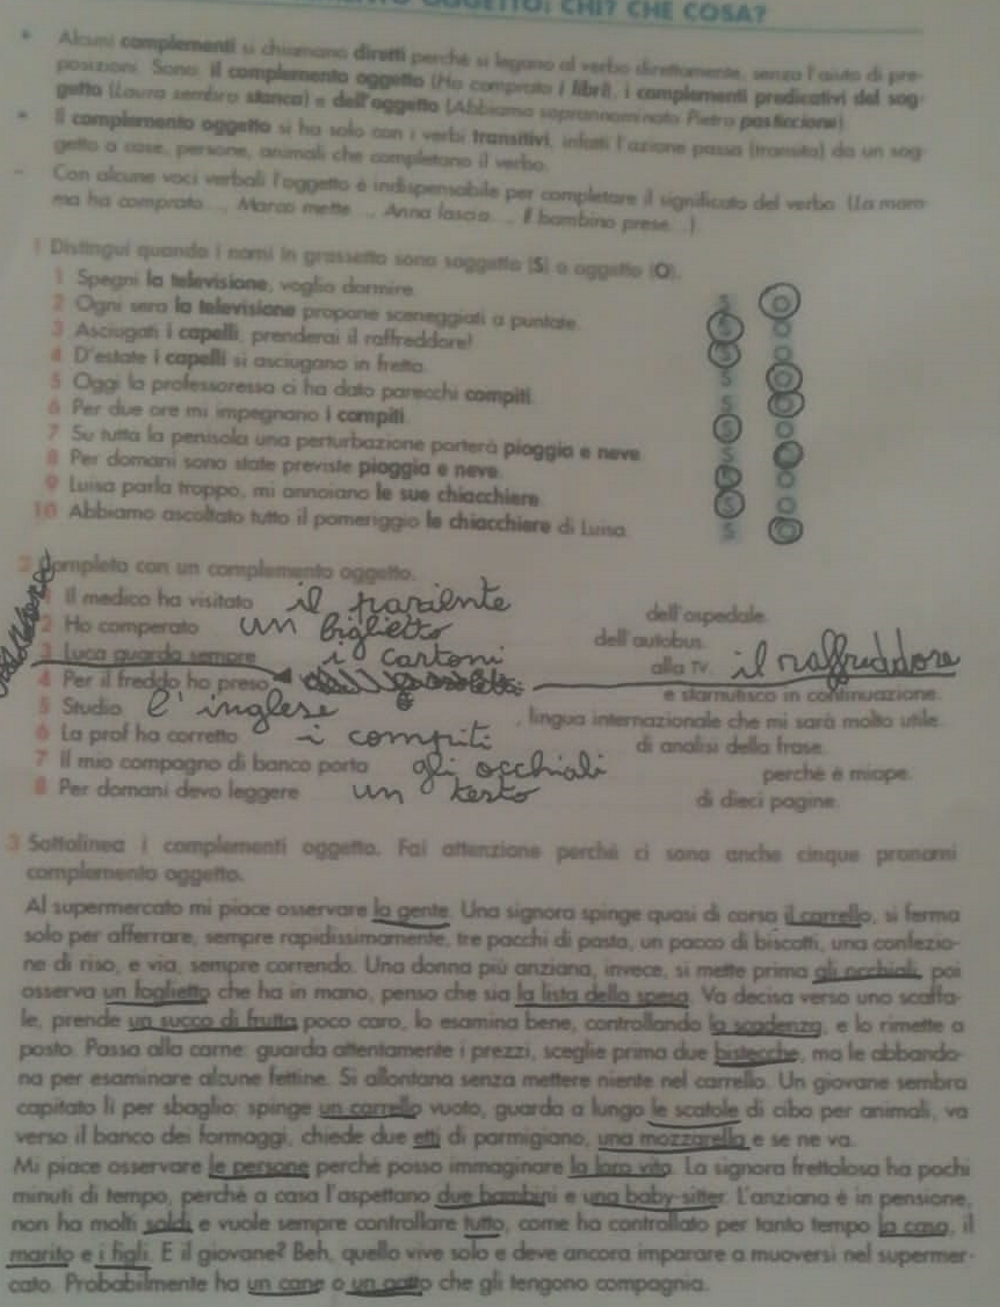 OGGETTO: CHI? CHE COSA?
• Alcuni complementi si chiamano diretti perché si legano al verbo direttamente, senza l'aiuto di pre-
posizioni. Sono: il complemento oggetto (Ho comprato i libri), i complementi predicativi del sog-
getto (Laura sembra stanca) e dell'oggetto (Abbiamo soprannominato Pietro pasticcione).
• Il complemento oggetto si ha solo con i verbi transitivi, infatti l'azione passa (transita) da un sog-
getto a cose, persone, animali che completano il verbo.
– Con alcune voci verbali l'oggetto è indispensabile per completare il significato del verbo. (La mam-
ma ha comprato..., Marco mette..., Anna lascia..., Il bambino prese...).
1 Distingui quando i nomi in grassetto sono soggetto (S) o oggetto (O).
1 Spegni la televisione, voglio dormire. S O
2 Ogni sera la televisione propone sceneggiati a puntate. S O
3 Asciugati i capelli, prenderai il raffreddore! S O
4 D'estate i capelli si asciugano in fretta. S O
5 Oggi la professoressa ci ha dato parecchi compiti. S O
6 Per due ore mi impegnano i compiti. S O
7 Su tutta la penisola una perturbazione porterà pioggia e neve. S O
8 Per domani sono state previste pioggia e neve. S O
9 Luisa parla troppo, mi annoiano le sue chiacchiere. S O
10 Abbiamo ascoltato tutto il pomeriggio le chiacchiere di Luisa. S O
2 Completa con un complemento oggetto.
1 Il medico ha visitato il paziente dell'ospedale.
2 Ho comperato un biglietto dell'autobus.
3 Luca guarda sempre i cartoni alla TV. il raffreddore
4 Per il freddo ho preso e starnutisco in continuazione.
5 Studio l'inglese, lingua internazionale che mi sarà molto utile.
6 La prof ha corretto i compiti di analisi della frase.
7 Il mio compagno di banco porta gli occhiali perché è miope.
8 Per domani devo leggere un testo di dieci pagine.
3 Sottolinea i complementi oggetto. Fai attenzione perché ci sono anche cinque pronomi
complemento oggetto.
Al supermercato mi piace osservare la gente. Una signora spinge quasi di corsa il carrello, si ferma
solo per afferrare, sempre rapidissimamente, tre pacchi di pasta, un pacco di biscotti, una confezio-
ne di riso, e via, sempre correndo. Una donna più anziana, invece, si mette prima gli occhiali, poi
osserva un foglietto che ha in mano, penso che sia la lista della spesa. Va decisa verso uno scaffa-
le, prende un succo di frutta poco caro, lo esamina bene, controllando la scadenza, e lo rimette a
posto. Passa alla carne: guarda attentamente i prezzi, sceglie prima due bistecche, ma le abbando-
na per esaminare alcune fettine. Si allontana senza mettere niente nel carrello. Un giovane sembra
capitato lì per sbaglio: spinge un carrello vuoto, guarda a lungo le scatole di cibo per animali, va
verso il banco dei formaggi, chiede due etti di parmigiano, una mozzarella e se ne va.
Mi piace osservare le persone perché posso immaginare la loro vita. La signora frettolosa ha pochi
minuti di tempo, perché a casa l'aspettano due bambini e una baby-sitter. L'anziana è in pensione,
non ha molti soldi e vuole sempre controllare tutto, come ha controllato per tanto tempo la casa, il
marito e i figli. E il giovane? Beh, quello vive solo e deve ancora imparare a muoversi nel supermer-
cato. Probabilmente ha un cane o un gatto che gli tengono compagnia.